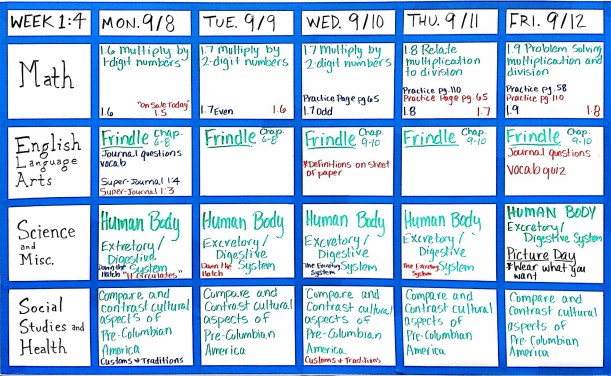 WEEK 1:4
MON. 9/8
TUE. 9/9
WED. 9/10
THU. 9/11
FRI. 9/12
Math
1.6 Multiply by
1-digit numbers
"On Sale Today"
1.6 1.5
1.7 Multiply by
2-digit numbers
1.7 Even 1.6
1.7 Multiply by
2-digit numbers
Practice Page pg 65
1.7 Odd
1.8 Relate
multiplication
to division
Practice pg. 110
Practice Page pg. 65
1.8 1.7
1.9 Problem Solving
multiplication and
division
Practice pg. 58
Practice pg. 110
1.9 1.8
English
Language
Arts
Frindle Chap. 6-8
Journal questions
vocab
Super-Journal 1:4
Super-Journal 1:3
Frindle Chap. 6-8
Frindle Chap. 9-10
*Definitions on sheet
of paper
Frindle Chap. 9-10
Frindle Chap. 9-10
Journal questions
vocab quiz
Science
and
Misc.
Human Body
Excretory/
Digestive
System
Down the
Hatch "It Circulates"
Human Body
Excretory/
Digestive
System
Down the
Hatch
Human Body
Excretory/
Digestive
System
The Excretory
System
Human Body
Excretory/
Digestive
System
The Excretory
System
HUMAN BODY
Excretory/
Digestive System
Picture Day
*Wear what you
want
Social
Studies and
Health
Compare and
contrast cultural
aspects of
Pre-Columbian
America
Customs & Traditions
Compare and
Contrast cultural
aspects of
Pre-Columbian
America
Compare and
Contrast cultural
aspects of
Pre-Columbian
America
Customs & Traditions
Compare and
contrast cultural
aspects of
Pre-Columbian
America
Compare and
contrast cultural
aspects of
Pre-Columbian
America